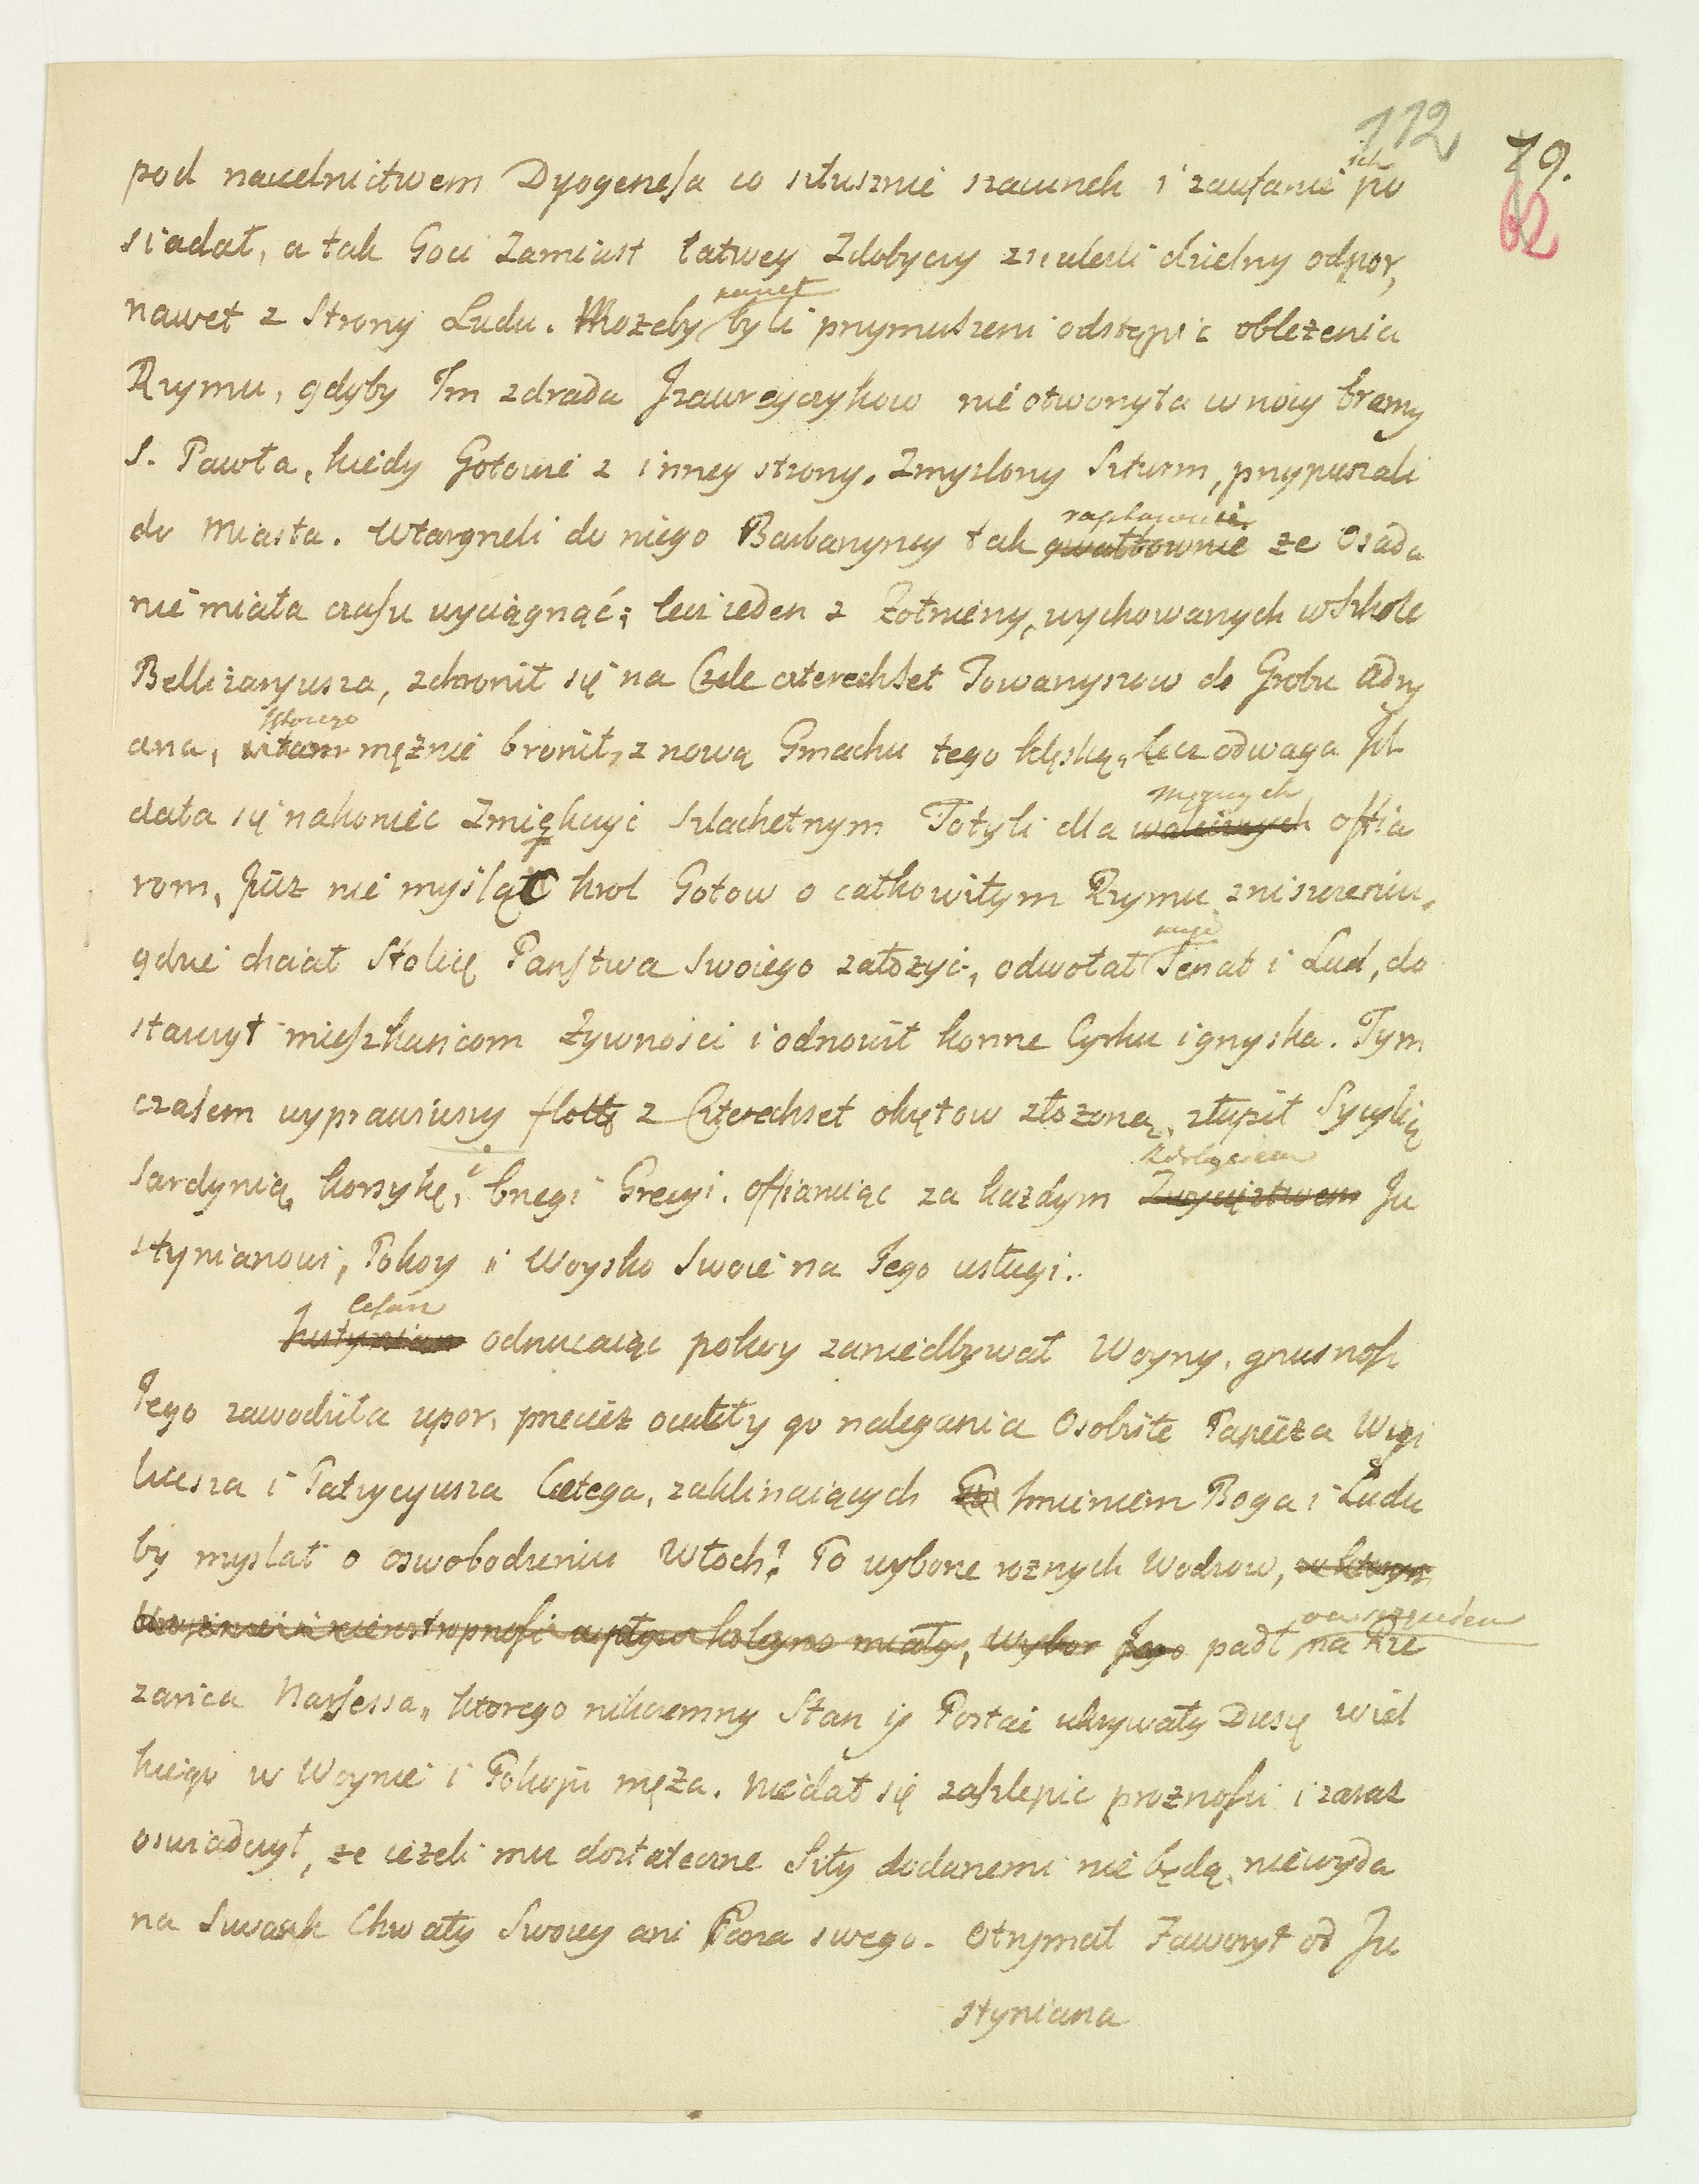 112
79.
62
pod naczelnictwem Dyogenesa co słusznie szacunek i zaufanie ich po
siadał, a tak Goci zamiast łatwey zdobyczy znaleźli dzielny odpor,
nawet z strony Ludu. Możeby nawet byli przymuszeni odstąpić oblężenia
Rzymu, gdyby Im zdrada Izaureyczykow nie otworzyła w nocy bramy
S. Pawła, kiedy Gotowie z inney strony, zmyślony szturm, przypuszczali
do Miasta. Wtargneli do niego Barbarzyncy tak gwałtownie raptownie że Osada
nie miała czasu wyciągnąć; lecz ieden z Żołnierzy, wychowanych w Szkole
Bellizaryusza, schronił się na Czele czterechset Towarzyszow do Grobu Adry
ana, mężnie bronił, z nową Gmachu tego klęską, Lecz odwaga Ich
dała się nakoniec zmiękczyć szlachetnym Totyli dla walecznych mężnych offia
rom, Już nie myśląc krol Gotow o całkowitym Rzymu zniszczeniu,
gdzie chciał Stolicę Państwa Swoiego założyć, odwołał Senat i Lud, do
starczył mieszkańcom Żywności i odnowił konne Cyrku igrzyska. Tym
czasem wyprawiwszy flottę z Czterechset okrętow złożoną, złupił Sycylią
Sardynią, Korsykę, i brzegi Grecyi, offiaruiąc za każdym Zwycięztwem zdobyciem Ju
styniànowi, Pokoy i Woysko Swoie na Jego usługi.
Justynian Cesarz odrzucaiąc pokoy zaniedbywał Woyny, gnusność
Jego zawodziła upor, przecież ocuciły go nalegania Osobiste Papieża Wigi
liusza i Patrycyusza Cetega, zaklinaiących Go Imieniem Boga i Ludu
by myslał o oswobodzeniu Włoch. Po wyborze roznych Wodzow, w ktorym
i nieostropność wpływ koleyno miały, wybor Jego padł na Rze
zańca Narsessa, ktorego nikczemny Stan i Postać ukrywały Duszę wiel
kiego w Woynie i Pokoju męża. Nie dał się zaślepić prożności i zaraz
oswiadczył, że ieżeli mu dostateczne Siły dodanemi nie będą, nie wyda
na Szwank Chwały Swoiey ani Pana swego. Otrzymał Faworyt od Ju
styniana